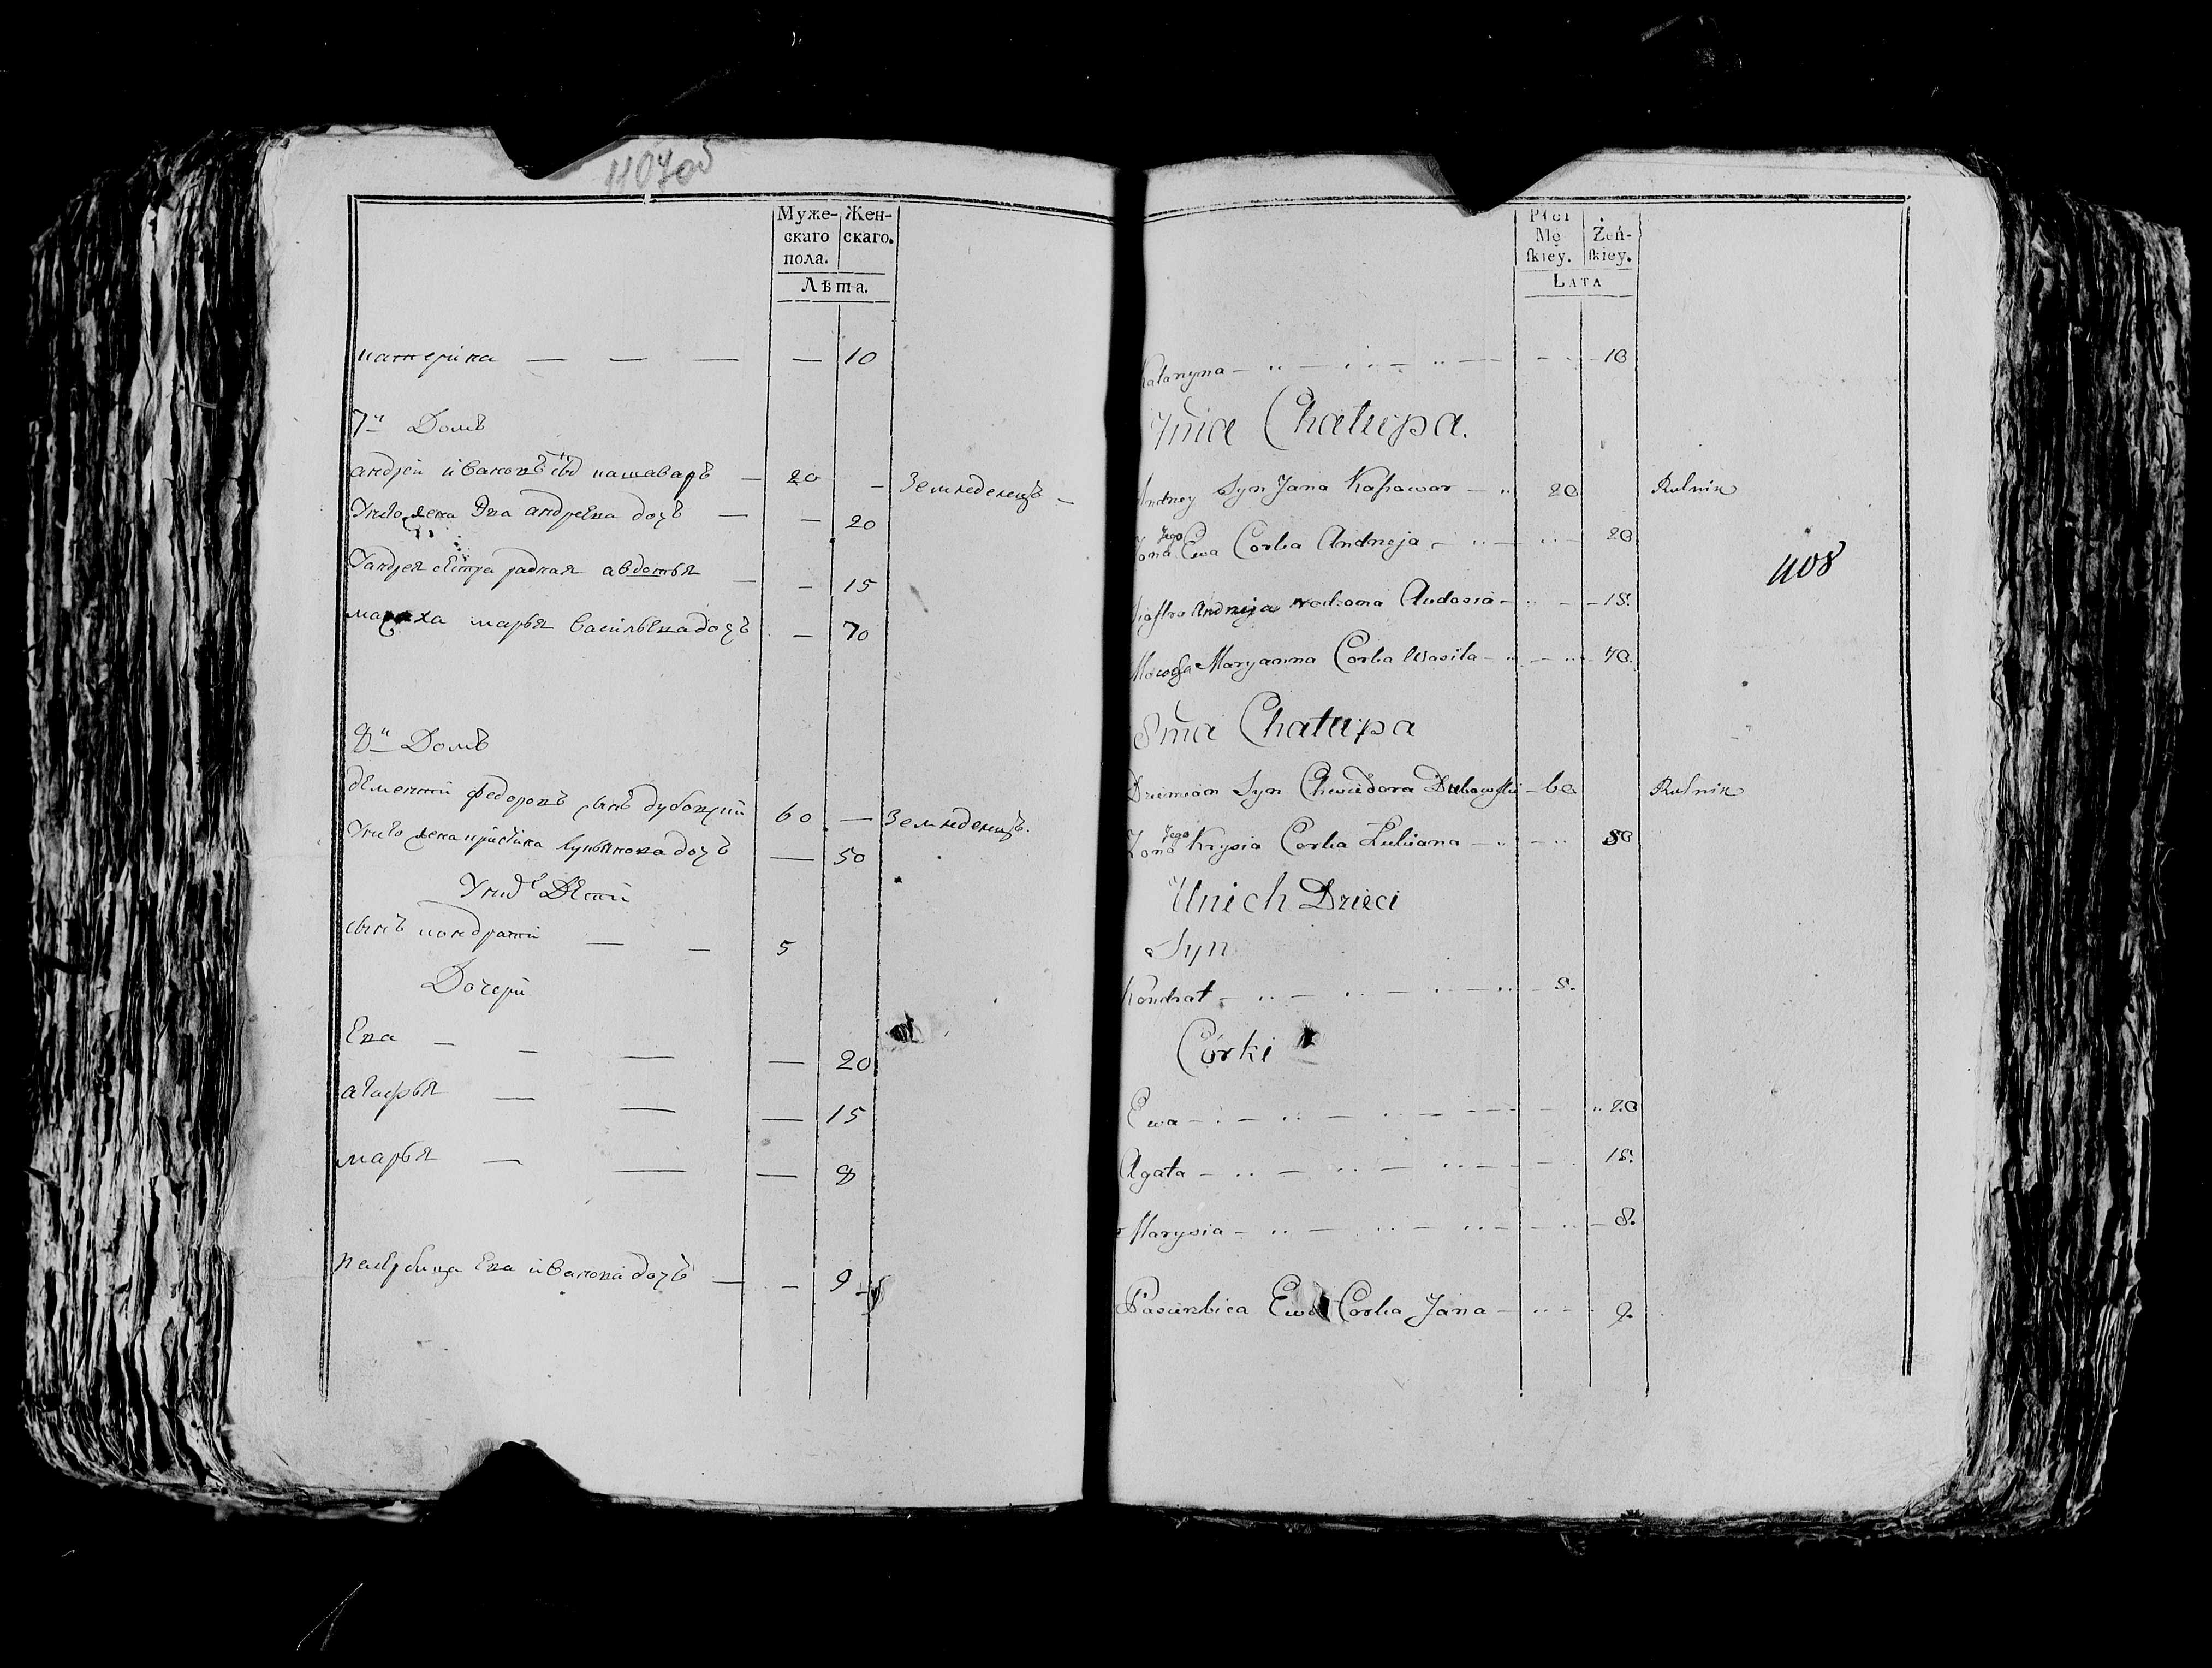 1107об
Муже-
скаго
пола.
Жен-
скаго.
Лѣта.
катерина — — — — 10
7й Домъ
андрей ивановъ снъ кашаваръ — 20 — Земледелецъ —
Унего жена Эва андреева дочъ — — 20
Уандрея сестра радная авдотья — — 15
мачиха марья васильева дочъ — 70
8й Домъ
дементий федоровъ сынъ дубовский 60 — Земледелецъ.
Унего жена кристина лукьянова дочъ — 50
Унихъ Дети
сынъ кондратий — — 5
Дочери
Ева — — — — 20
агафья — — — 15
марья — — — 8
пасербица Ева иванова дочъ — — 9
Płci
Mę
ſkiey.
Żeń-
ſkiey.
Lata
Katarzyna — 10
7ma Chałupa.
Andrzey Syn Jana Kaſzawar — 20 Rolnik
Żona Jego Ewa Corka Andrzeja — 20
1108
Siostra Andrzeja rodzona Audosia — 15.
Macocha Maryanna Corka Wasila — 70.
8ma Chałupa
Dziemian Syn Chwiedora Dubowski — 60 Rolnik
Żona Jego Krysia Corka Lukiana — 50
U nich Dzieci
Syn
Kondrat — 5.
Córki
Ewa — 20
Agata — 15.
Marysia — 8.
Pasierzbica Ewa Corka Jana — 9.